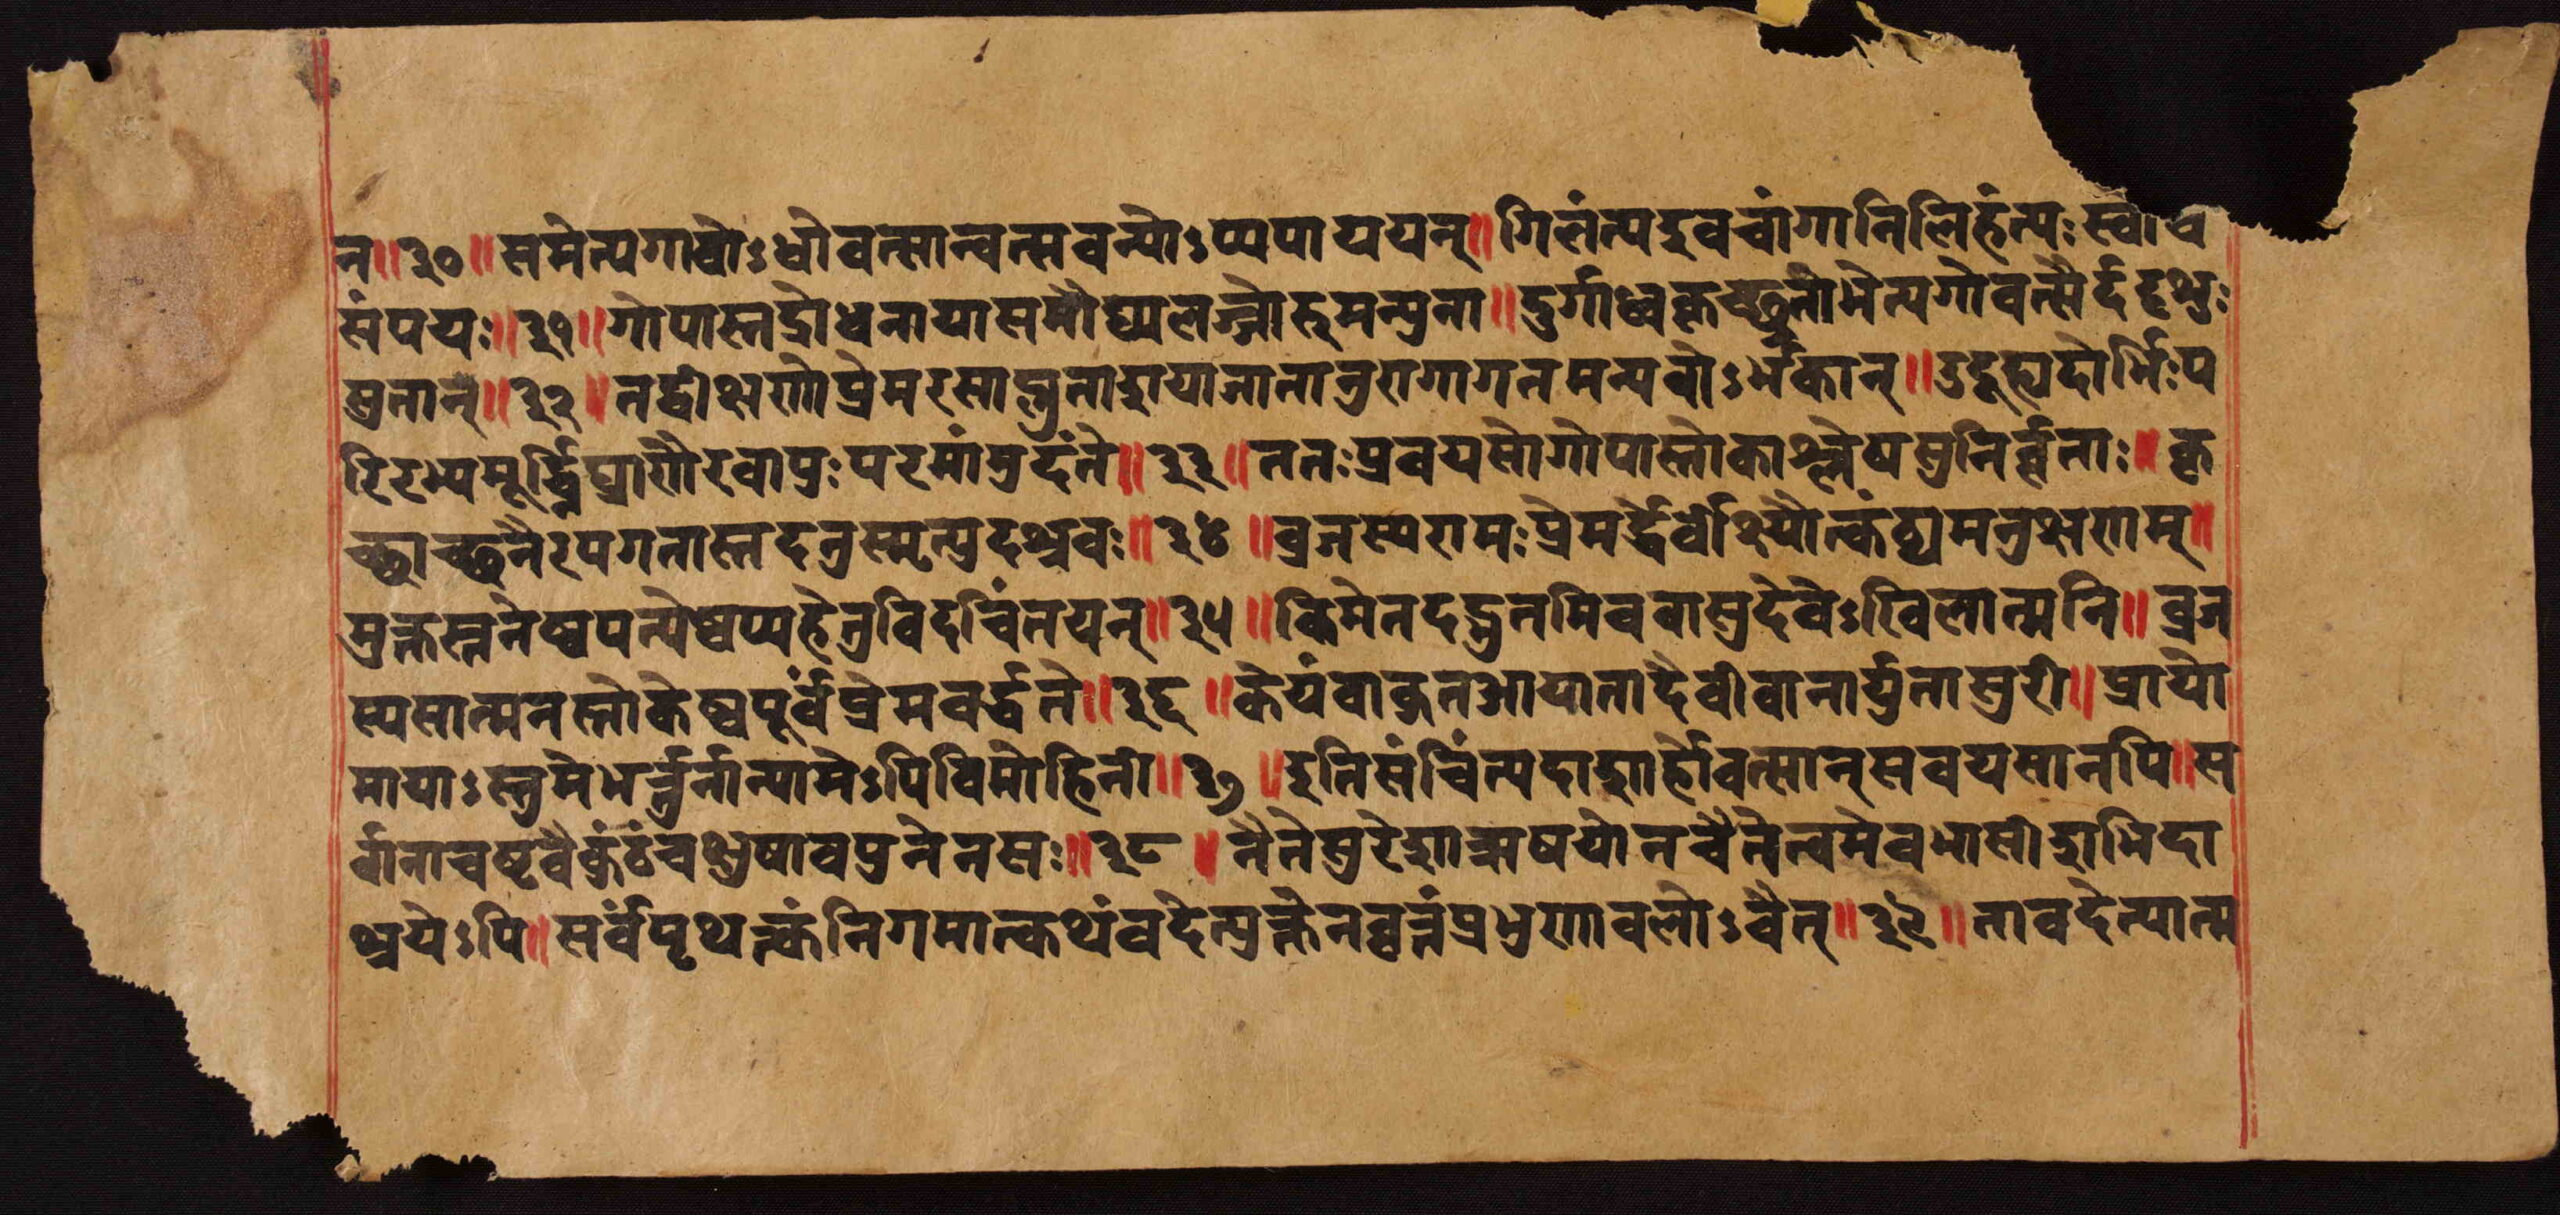 त॥३०॥समेत्यगावोऽधोवत्सान्वत्सवत्योऽप्यपाययन्॥गिलंत्यइवचांगानिलिहंत्यःस्वौध
संपयः॥३१॥गोपास्तद्रोधनायासमौघ्यलज्जोरुमन्युना॥दुर्गाध्वकृच्छ्रतोभेत्यगोवत्सैर्ददृशुः
सुतान्॥३२॥तद्वीक्षणोप्रेमरसाप्लुताशयाजातानुरागागतमन्यवोऽर्भकान्॥उदूह्यदोर्भिःप
रिरभ्यमूर्द्ध्निघ्राणैरवापुःपरमांमुदंते॥३३॥ततःप्रवयसोगोपास्तोकाश्लेषसुनिर्वृताः॥कृ
च्छ्राच्छनैरपगतास्तदनुस्मृत्युदश्रवः॥३४॥व्रजस्यरामःप्रेमर्द्धेर्वीक्ष्यौत्कंठ्यमनुक्षणम्॥
मुक्तस्तनेष्वपत्येष्वप्यहेतुविदचिंतयत्॥३५॥किमेतदद्भुतमिववासुदेवेऽखिलात्मनि॥व्रज
स्यसात्मनस्तोकेष्वपूर्वंप्रेमवर्द्धते॥३६॥केयंवाकुतआयातादैवीवानार्युतासुरी॥प्रायो
मायाऽस्तुमेभर्त्तुर्नान्यामेऽपिविमोहिनी॥३७॥इतिसंचिंत्यदाशार्होवत्सान्सवयसानपि॥स
र्वानाचष्टवैकुंठंचक्षुषावयुनेनसः॥३८॥नैतेसुरेशाऋषयोनचैतेत्वमेवभासीशभिदा
श्रयेऽपि॥सर्वंपृथत्क्कंनिगमात्कथंवदेत्युक्तेनवृत्तंप्रभुणावलोऽवैत्॥३९॥तावदेत्यात्म